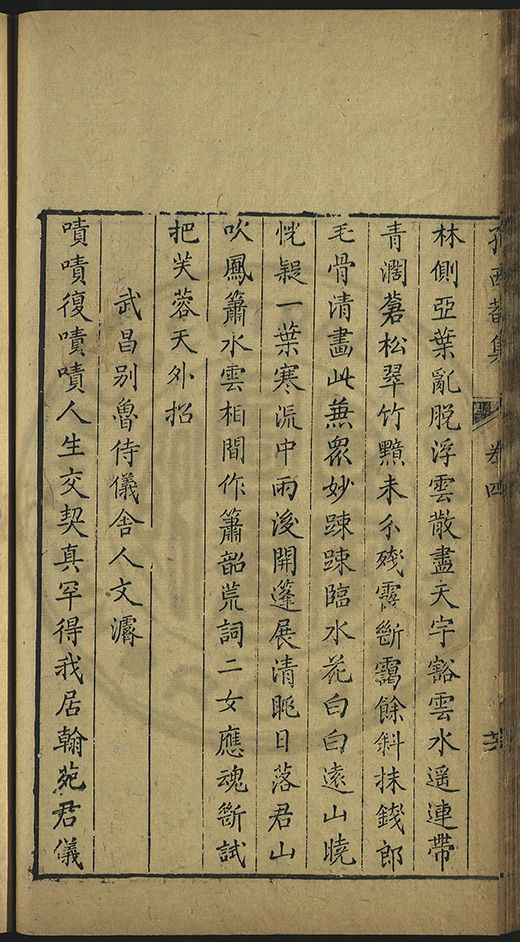 林側亞葉亂脫浮雲散盡天宇豁雲水遥連帶
青澗蒼松翠竹黯未分殘霞斷靄餘斜抹錢郎
毛骨清畫此蕪衆妙踈踈臨水花白白遠山曉
恍疑一葉寒流中雨後開蓬展清眺日落君山
吹鳳簫水雲相間作簫韶荒詞二女應魂斷試
把芙蓉天外招
武昌别魯侍儀舍人文濬
嘖嘖復嘖嘖人生交契真罕得我居翰苑君儀
卷四